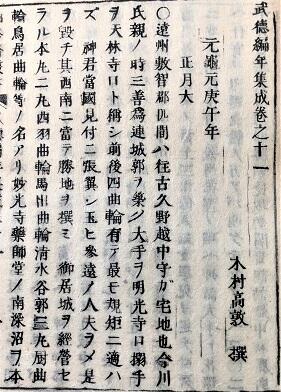 武德編年集成卷之十一
木村高敦 撰
元龜元庚午年
正月大
○遠州敷智郡匹間ハ往古久野越中守ガ宅地也今川
氏親ノ時三善爲連城郭ヲ築シ大手ヲ明光寺口搦手
ヲ天林寺口ト稱シ前後四曲輪有テ最モ規矩ニ適ハ
ズ 神君當國見付ニ張翼シ玉ヒ參遠ノ人夫ヲメ是
ヲ毀チ其西南ニ當テ勝地ヲ撰ミ 御居城ヲ經營セ
ラル本丸二丸西羽曲輪馬出曲輪清水谷郭三丸厨曲
輪鳥居曲輪等ノ名アリ妙光寺藥師堂ノ南深沼ヲ本